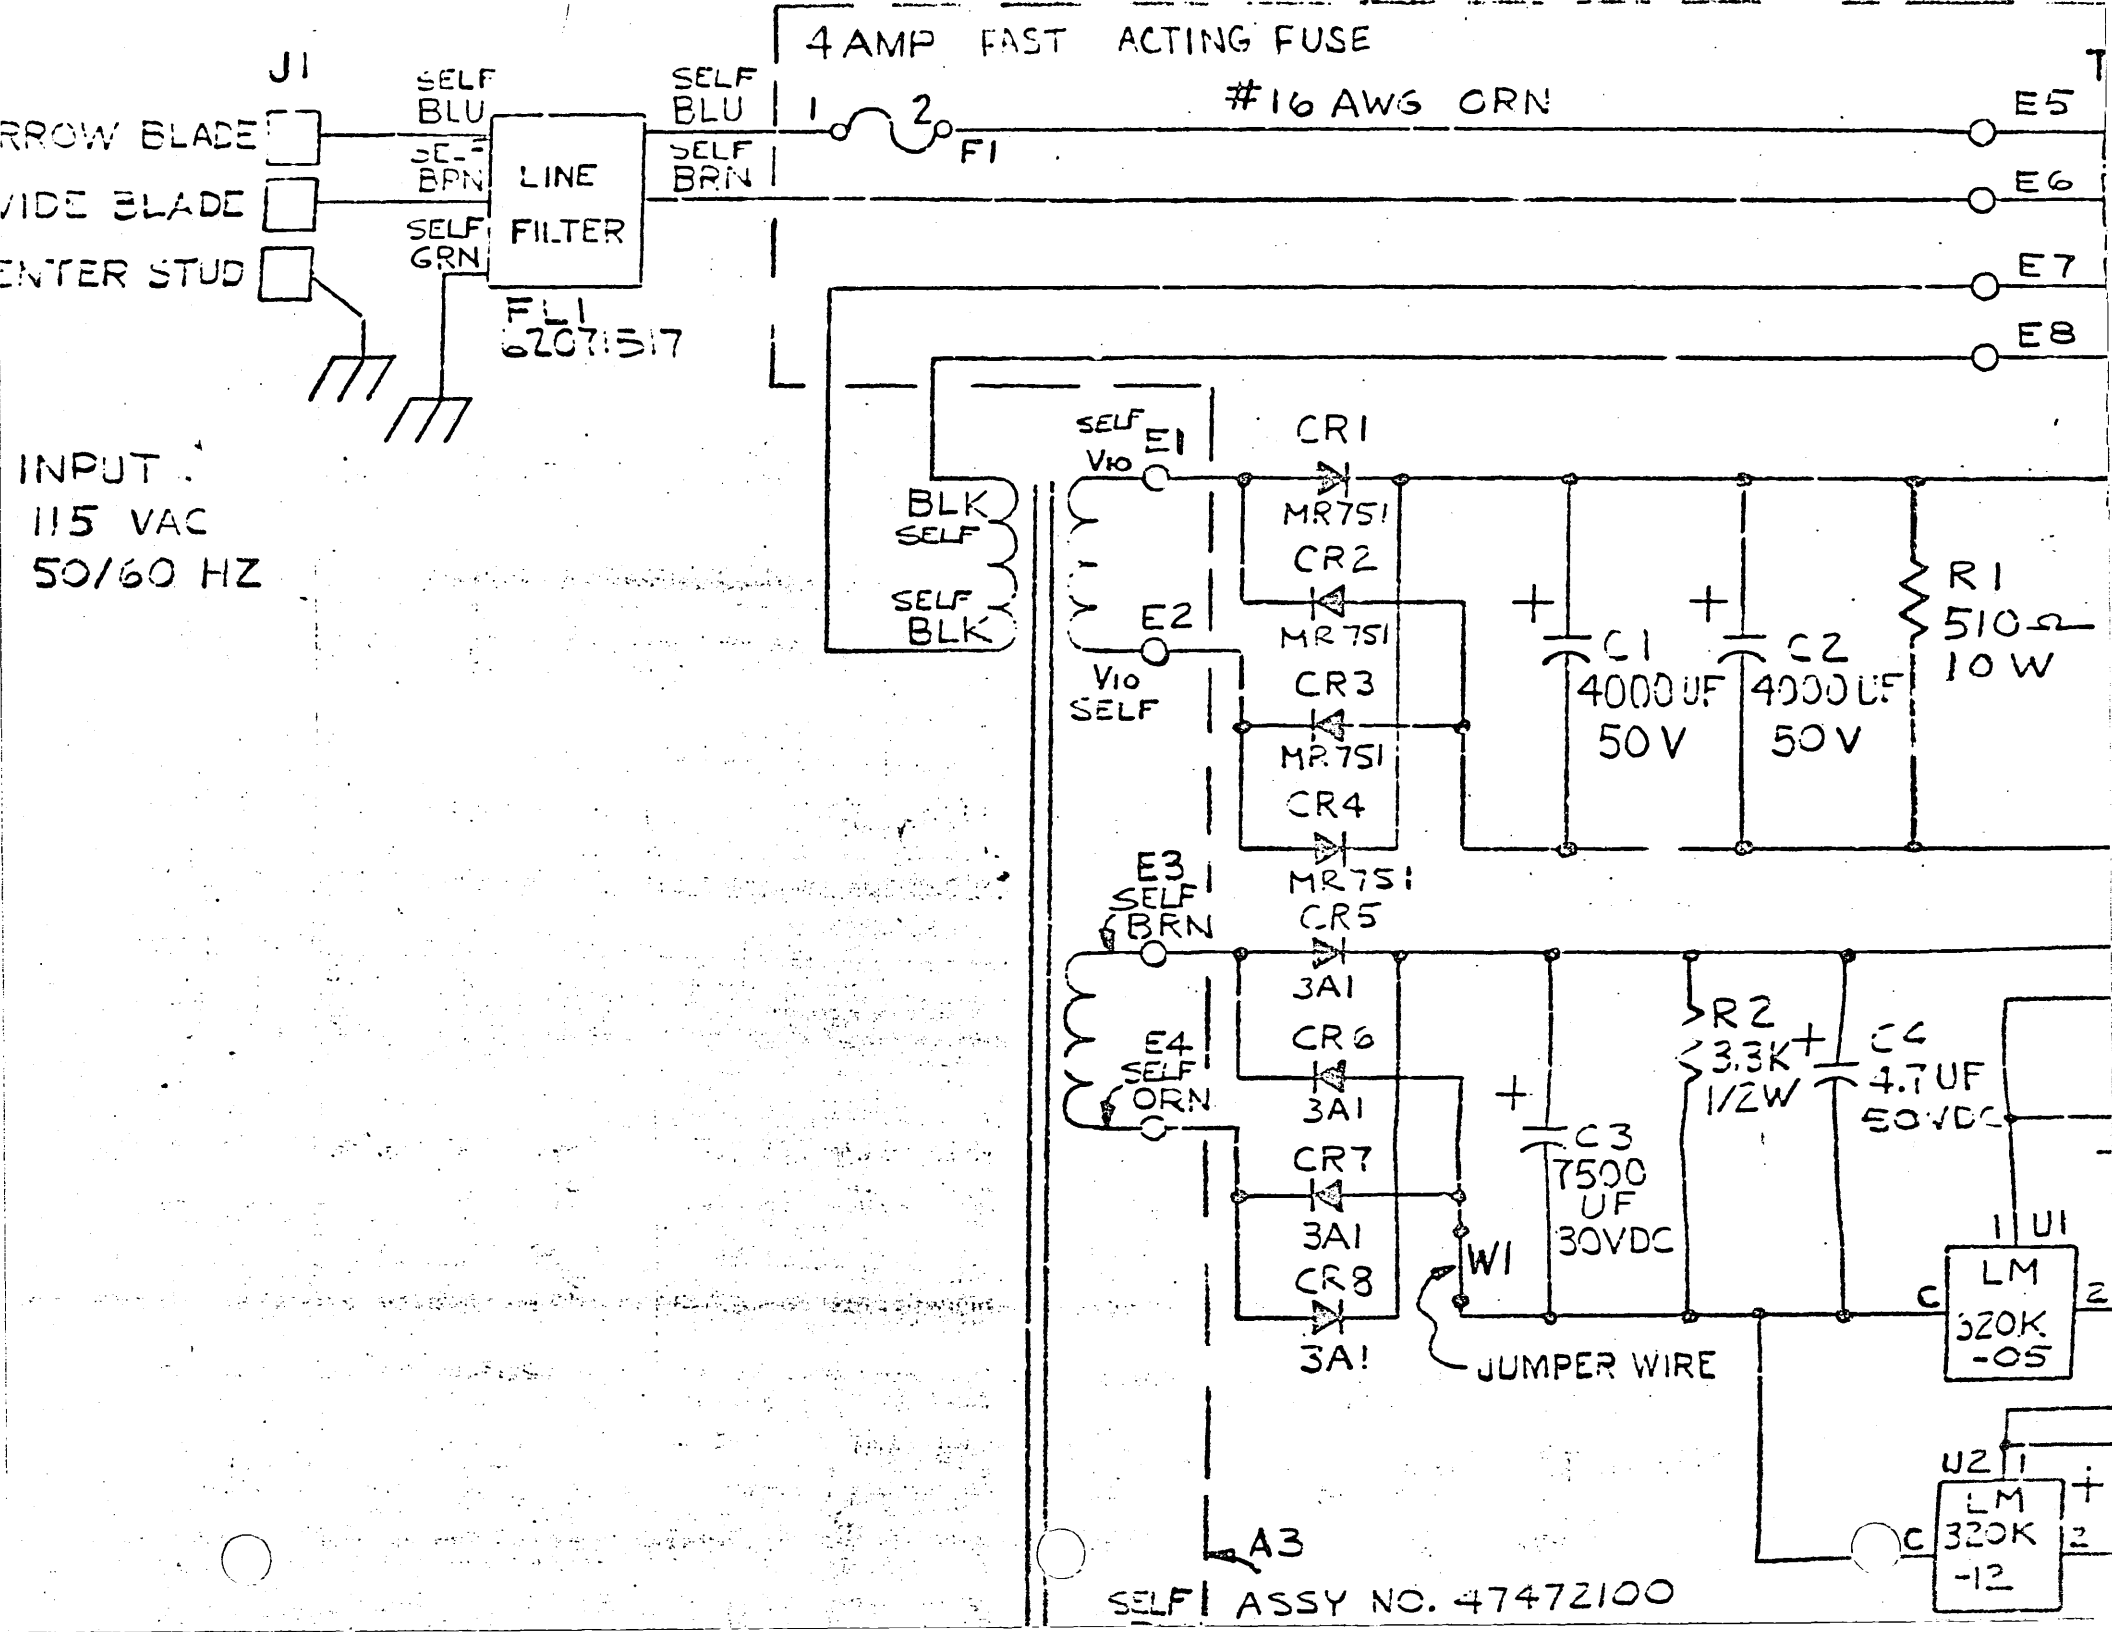 4 AMP FAST ACTING FUSE
J1
SELF
BLU
SELF
BLU
1
2
#16 AWG ORN
E5
T
RROW BLADE
F1
SELF
BRN
LINE
FILTER
SELF
BRN
E6
WIDE BLADE
SELF
GRN
ENTER STUD
E7
FL1
62071517
E8
INPUT
115 VAC
50/60 HZ
SELF
E1
V10
CR1
MR751
BLK
SELF
CR2
MR751
SELF
BLK
E2
V10
SELF
CR3
MR751
CR4
MR751
+
C1
4000UF
50V
+
C2
4000UF
50V
R1
510Ω
10W
E3
SELF
BRN
CR5
3A1
E4
SELF
ORN
CR6
3A1
CR7
3A1
CR8
3A1
W1
JUMPER WIRE
+
C3
7500
UF
30VDC
R2
3.3K
1/2W
+
C4
4.7UF
50VDC
1 U1
C
LM
320K
-05
2
U2 1
C
LM
320K
-12
+
2
A3
SELF ASSY NO. 47472100